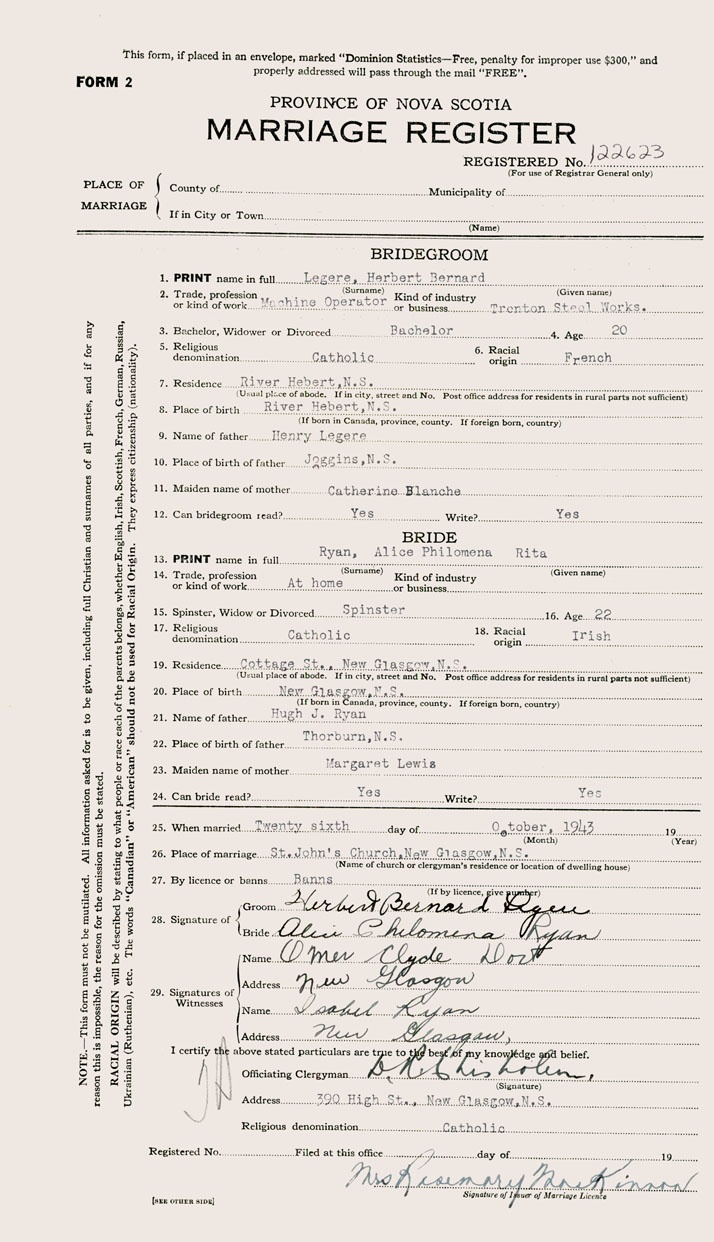 This form, if placed in an envelope, marked “Dominion Statistics—Free, penalty for improper use $300,” and
properly addressed will pass through the mail “FREE”.
FORM 2
PROVINCE OF NOVA SCOTIA
MARRIAGE REGISTER
REGISTERED No. 122623
(For use of Registrar General only)
PLACE OF MARRIAGE
County of Municipality of
If in City or Town
(Name)
BRIDEGROOM
1. PRINT name in full Legere, Herbert Bernard
(Surname) (Given name)
2. Trade, profession or kind of work Machine Operator Kind of industry or business Trenton Steel Works.
3. Bachelor, Widower or Divorced Bachelor 4. Age 20
5. Religious denomination Catholic 6. Racial origin French
7. Residence River Hebert,N.S.
(Usual place of abode. If in city, street and No. Post office address for residents in rural parts not sufficient)
8. Place of birth River Hebert,N.S.
(If born in Canada, province, county. If foreign born, country)
9. Name of father Henry Legere
10. Place of birth of father Joggins,N.S.
11. Maiden name of mother Catherine Blanche
12. Can bridegroom read? Yes Write? Yes
BRIDE
13. PRINT name in full Ryan, Alice Philomena Rita
(Surname) (Given name)
14. Trade, profession or kind of work At home Kind of industry or business
15. Spinster, Widow or Divorced Spinster 16. Age 22
17. Religious denomination Catholic 18. Racial origin Irish
19. Residence Cottage St., New Glasgow,N.S.
(Usual place of abode. If in city, street and No. Post office address for residents in rural parts not sufficient)
20. Place of birth New Glasgow,N.S.
(If born in Canada, province, county. If foreign born, country)
21. Name of father Hugh J. Ryan
22. Place of birth of father Thorburn,N.S.
23. Maiden name of mother Margaret Lewis
24. Can bride read? Yes Write? Yes
25. When married Twenty sixth day of October, 1943 19
(Month) (Year)
26. Place of marriage St.John's Church,New Glasgow,N.S.
(Name of church or clergyman's residence or location of dwelling house)
27. By licence or banns Banns
(If by licence, give number)
28. Signature of
Groom Herbert Bernard Legere
Bride Alice Philomena Ryan
29. Signatures of Witnesses
Name Omer Clyde
Address New Glasgow
Name Isabel Ryan
Address New Glasgow,
I certify the above stated particulars are true to the best of my knowledge and belief.
Officiating Clergyman D. R. Chisholm,
(Signature)
Address 390 High St., New Glasgow,N.S.
Religious denomination Catholic
Registered No. Filed at this office day of 19
Mrs Rosemary MacKinnon
Signature of Issuer of Marriage Licence
[SEE OTHER SIDE]
NOTE.—This form must not be mutilated. All information asked for is to be given, including full Christian and surnames of all parties, and if for any
reason this is impossible, the reason for the omission must be stated.
RACIAL ORIGIN will be described by stating to what people or race each of the parents belongs, whether English, Irish, Scottish, French, German, Russian,
Ukrainian (Ruthenian), etc. The words “Canadian” or “American” should not be used for Racial Origin. They express citizenship (nationality).